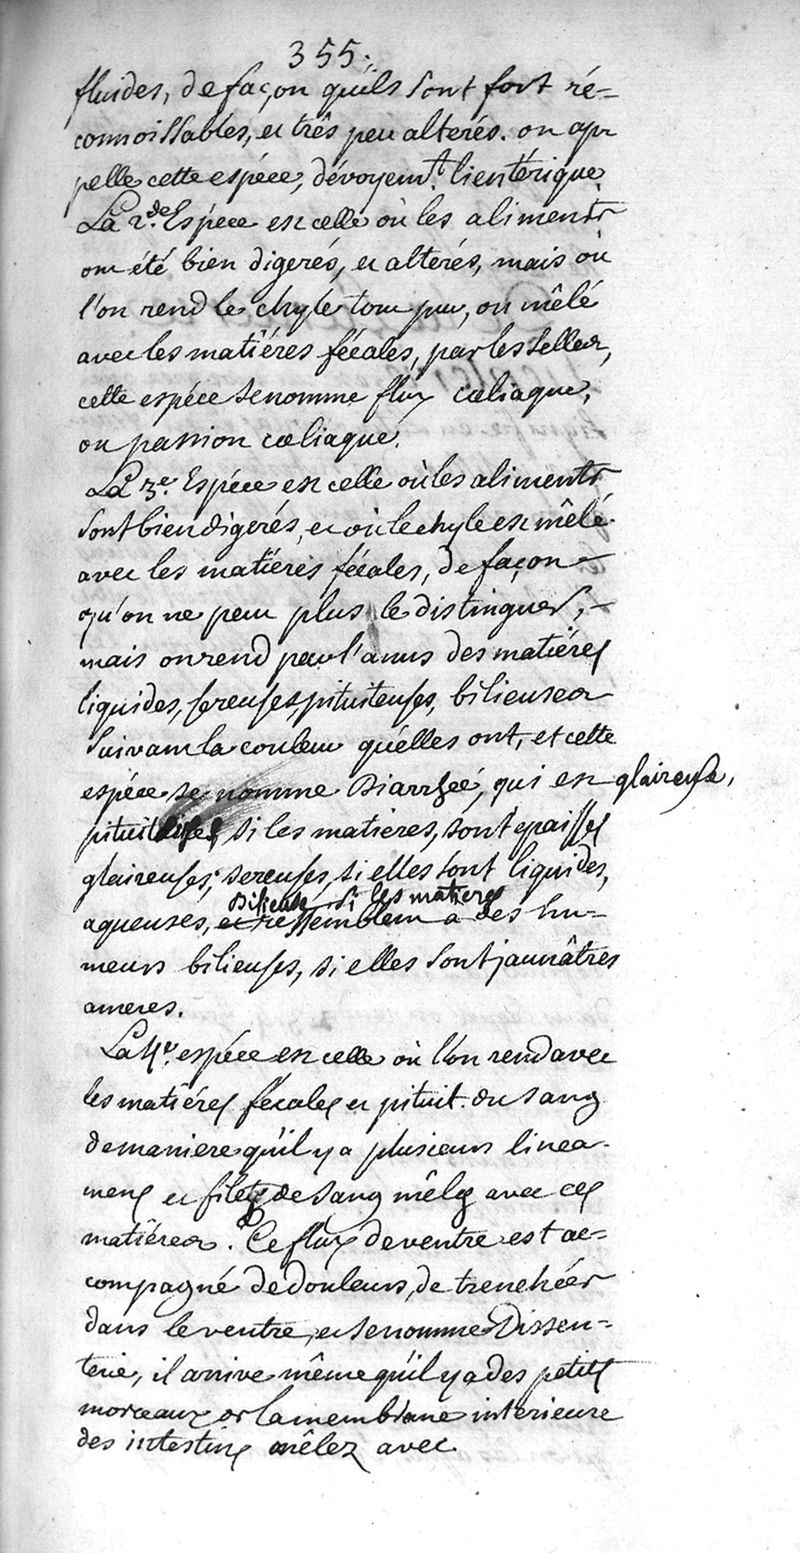 355.
fluides, de façon qu'ils sont fort ré=
connoissables, et trés peu alterés. on ap
pelle cette espéce, dévoyemt. lientérique.
La 2de. Espece est celle où les aliments
ont été bien digerés, et alterés, mais où
l'on rend le chyle tout pur, ou mêlé
avec les matiéres fécales, par les selles,
cette espéce se nomme flux cœliaque,
ou passion cœliaque.
La 3e. Espéce est celle où les aliments
sont bien digerés, et où le chyle est mêlé
avec les matiéres fécales, de façon
qu'on ne peut plus le distinguer,
mais on rend par l'anus des matiéres
liquides, sereuses, pituiteuses, bilieuses
suivant la couleur qu'elles ont, et cette
espéce se nomme Diarrheé, qui est glaireuse,
si les matieres, sont epaisses
glaireuses; sereuses, si elles sont liquides,
Bilieuse si les matieres
aqueuses, et ressemblent a des hu=
meurs bilieuses, si elles sont jaunâtres
ameres.
La 4e. espéce est celle où l'on rend avec
les matiéres fécales et pituit. du sang
de maniere qu'il y a plusieurs linea-
mens et filets de sang mêlés avec ces
matiéres. Ce flux de ventre est ac=
compagné de douleurs, de trenchées
dans le ventre, et se nomme Dissen=
terie, il arrive même qu'il y a des petits
morceaux de la membrane interieure
des intestins mêlez avec